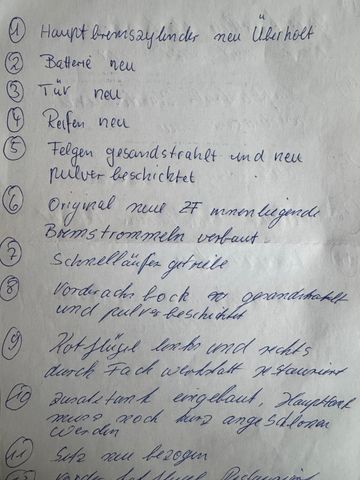 1 Hauptbremszylinder neu Überholt
2 Batterie neu
3 Tür neu
4 Reifen neu
5 Felgen gesandstrahlt und neu
pulverbeschicktet
6 Original neue ZF innenliegende
Bremstrommeln verbaut
7 Schnelläufer getriebe
8 Vorderachsbock gesandstrahlt
und pulverbeschichtet
9 Kotflügel links und rechts
durch Fachwerkstatt restauriert
10 Zusatztank eingebaut, Haupttank
muss noch angeschlossen
werden
11 Sitz neu bezogen